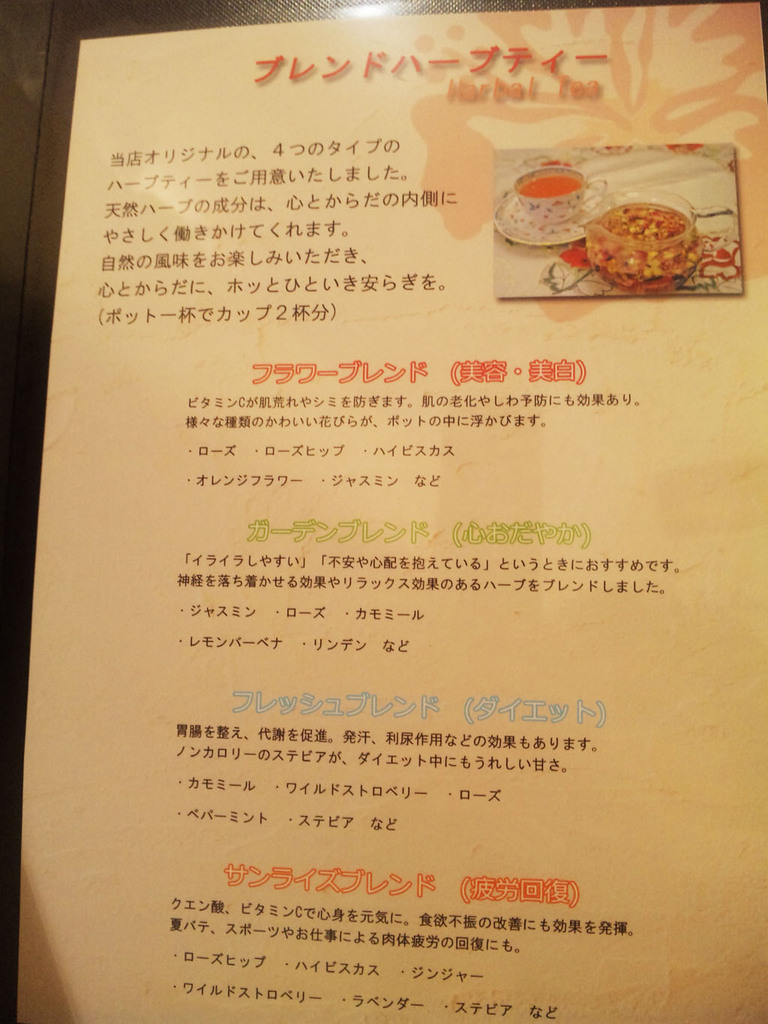 ブレンドハーブティー
Herbal Tea
当店オリジナルの、４つのタイプの
ハーブティーをご用意いたしました。
天然ハーブの成分は、心とからだの内側に
やさしく働きかけてくれます。
自然の風味をお楽しみいただき、
心とからだに、ホッとひといき安らぎを。
(ポット一杯でカップ２杯分)
フラワーブレンド　(美容・美白)
ビタミンCが肌荒れやシミを防ぎます。肌の老化やしわ予防にも効果あり。
様々な種類のかわいい花びらが、ポットの中に浮かびます。
・ローズ　・ローズヒップ　・ハイビスカス
・オレンジフラワー　・ジャスミン　など
ガーデンブレンド　(心おだやか)
「イライラしやすい」「不安や心配を抱えている」というときにおすすめです。
神経を落ち着かせる効果やリラックス効果のあるハーブをブレンドしました。
・ジャスミン　・ローズ　・カモミール
・レモンバーベナ　・リンデン　など
フレッシュブレンド　(ダイエット)
胃腸を整え、代謝を促進。発汗、利尿作用などの効果もあります。
ノンカロリーのステビアが、ダイエット中にもうれしい甘さ。
・カモミール　・ワイルドストロベリー　・ローズ
・ペパーミント　・ステビア　など
サンライズブレンド　(疲労回復)
クエン酸、ビタミンCで心身を元気に。食欲不振の改善にも効果を発揮。
夏バテ、スポーツやお仕事による肉体疲労の回復にも。
・ローズヒップ　・ハイビスカス　・ジンジャー
・ワイルドストロベリー　・ラベンダー　・ステビア　など